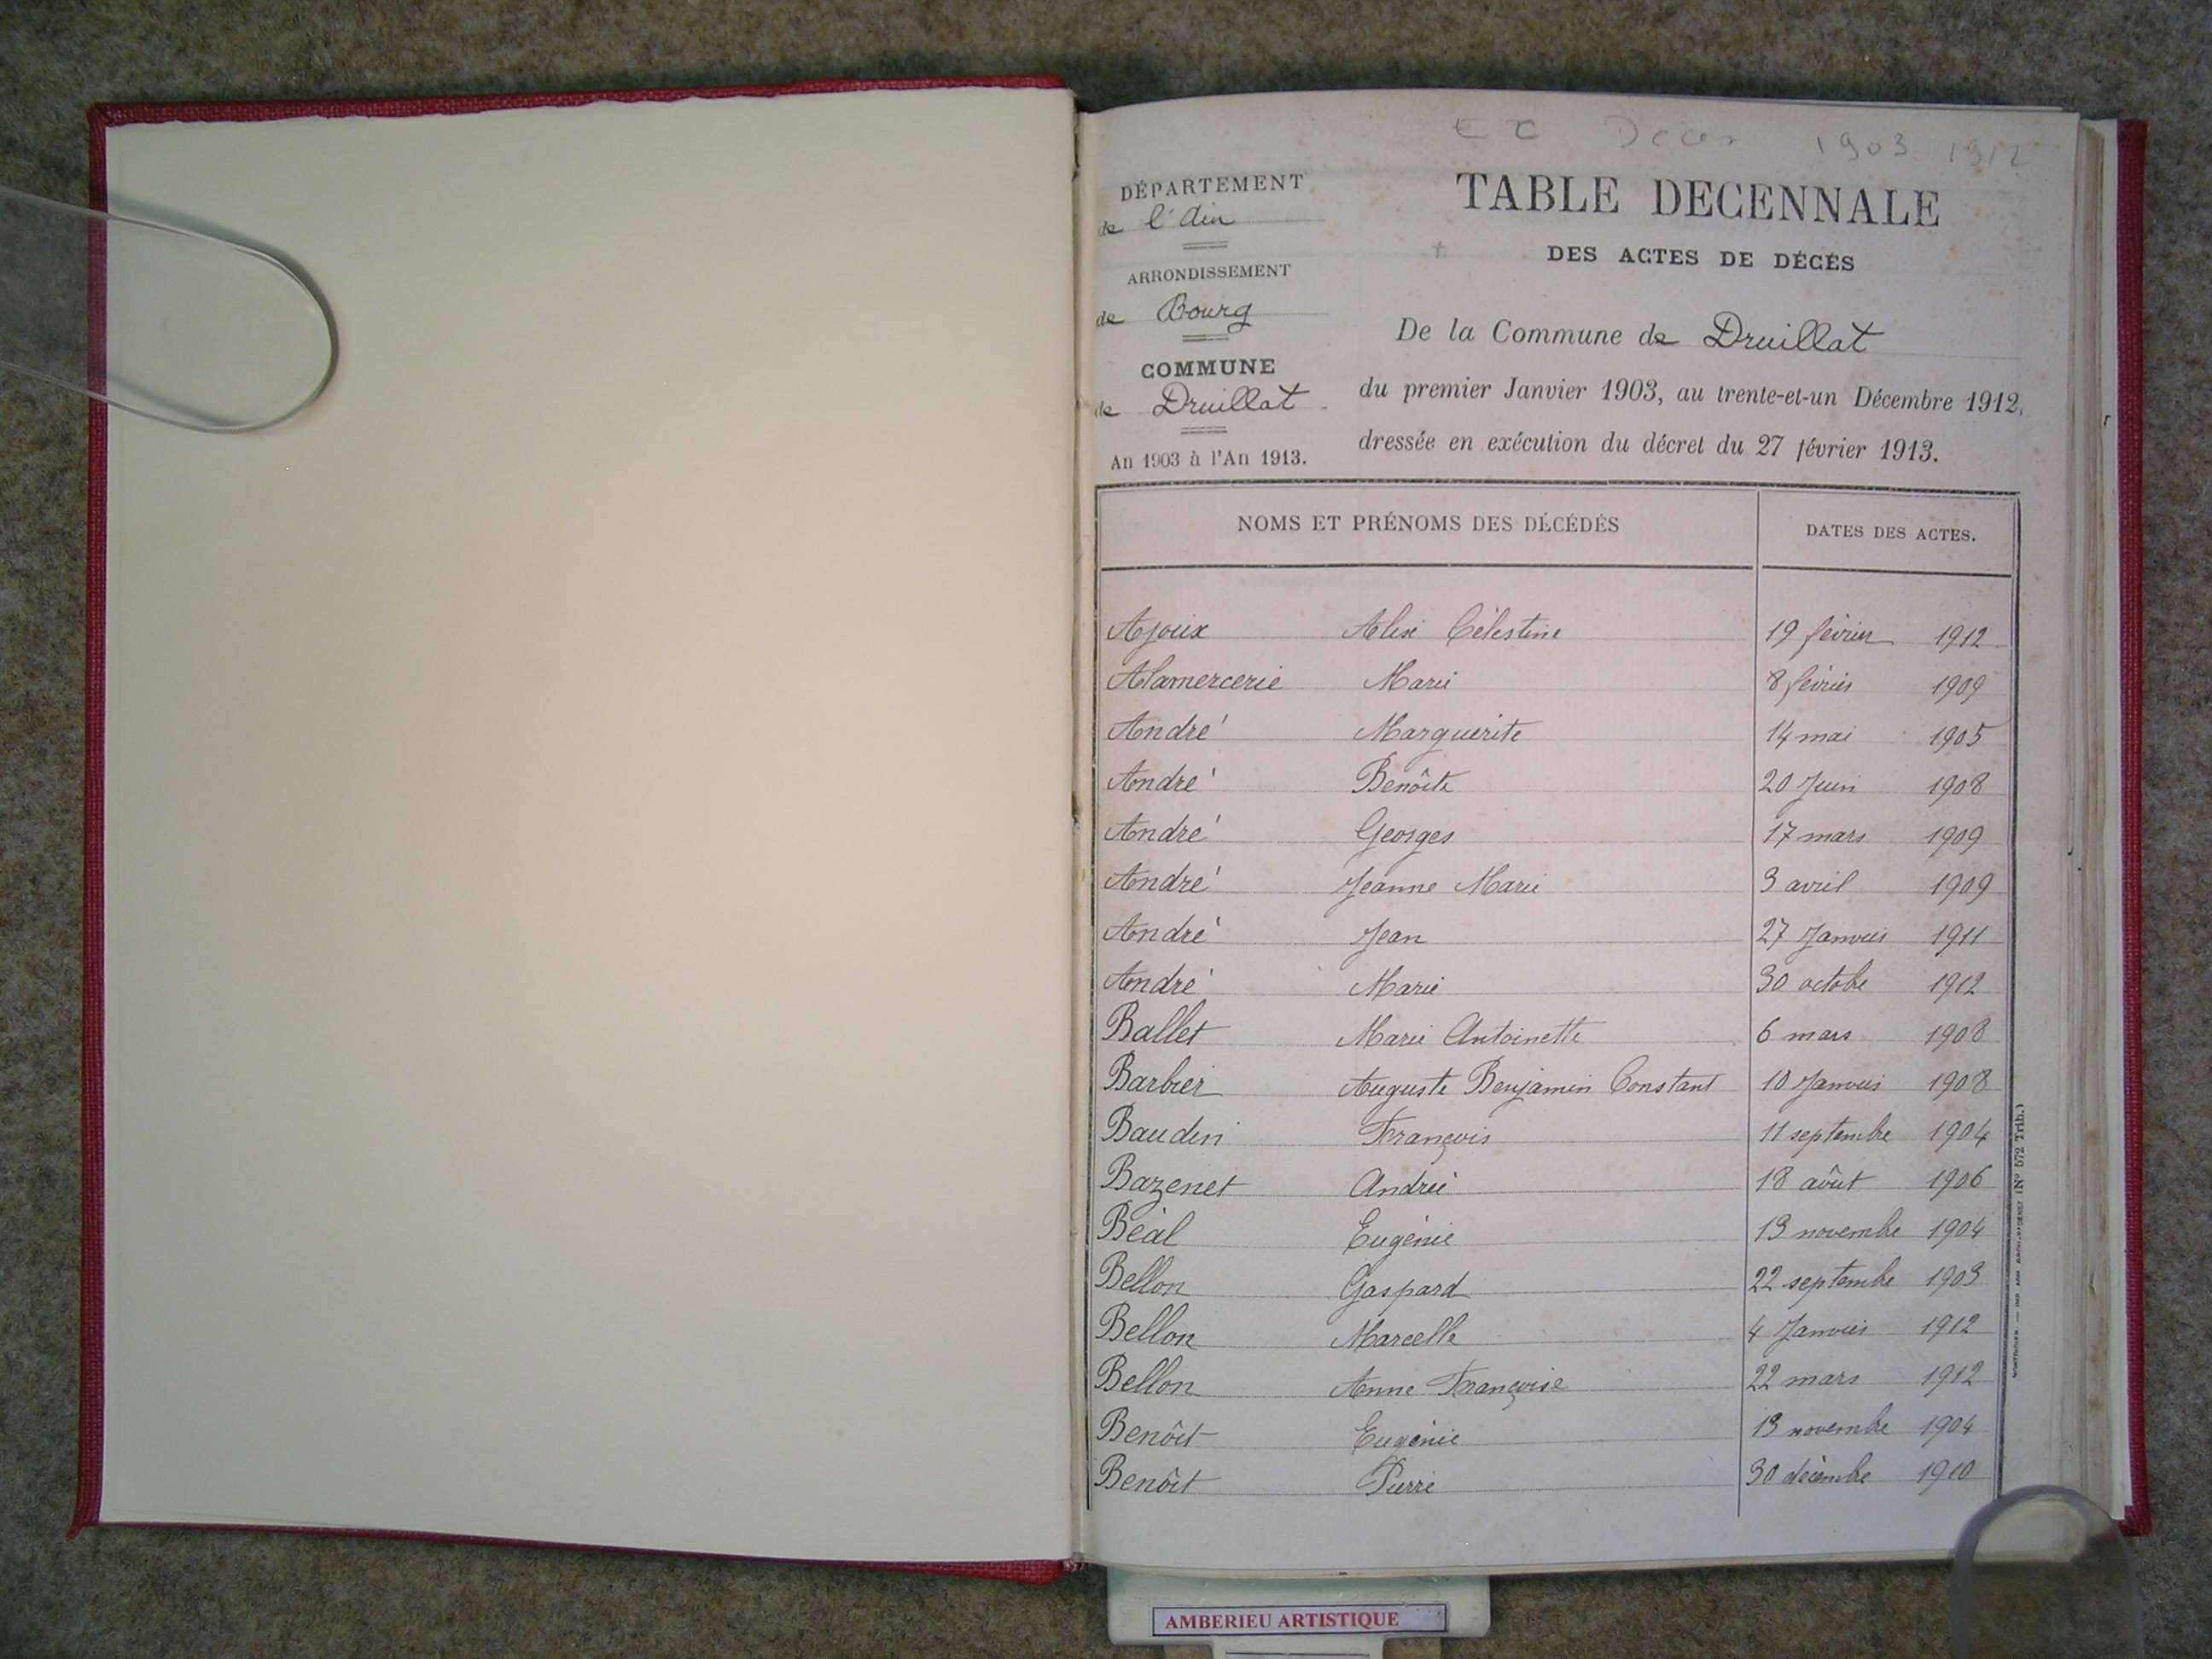 EC Deces 1903 1912
DÉPARTEMENT
de l'Ain
ARRONDISSEMENT
de Bourg
COMMUNE
de Druillat
An 1903 à l'An 1913.
TABLE DECENNALE
DES ACTES DE DÉCÈS
De la Commune de Druillat
du premier Janvier 1903, au trente-et-un Décembre 1912,
dressée en exécution du décret du 27 février 1913.
NOMS ET PRÉNOMS DES DÉCÉDÉS DATES DES ACTES.
Ajoux Célestine 19 février 1912
Alamercerie Marie 8 février 1909
André Marguerite 14 mai 1905
André Benôite 20 Juin 1908
André Georges 17 mars 1909
André Jeanne Marie 3 avril 1909
André Jean 27 Janvier 1911
André Marie 30 octobre 1912
Ballet Marie Antoinette 6 mars 1908
Barbier Auguste Benjamin Constant 10 Janvier 1908
Baudin François 11 septembre 1904
Bazenet André 18 aôut 1906
Béal Eugénie 13 novembre 1904
Bellon Gaspard 22 septembre 1903
Bellon Marcelle 4 Janvier 1912
Bellon Anne Françoise 22 mars 1912
Benôit Eugénie 13 novembre 1904
Benôit Pierre 30 décembre 1910
(N° 572 Trib.)
AMBERIEU ARTISTIQUE